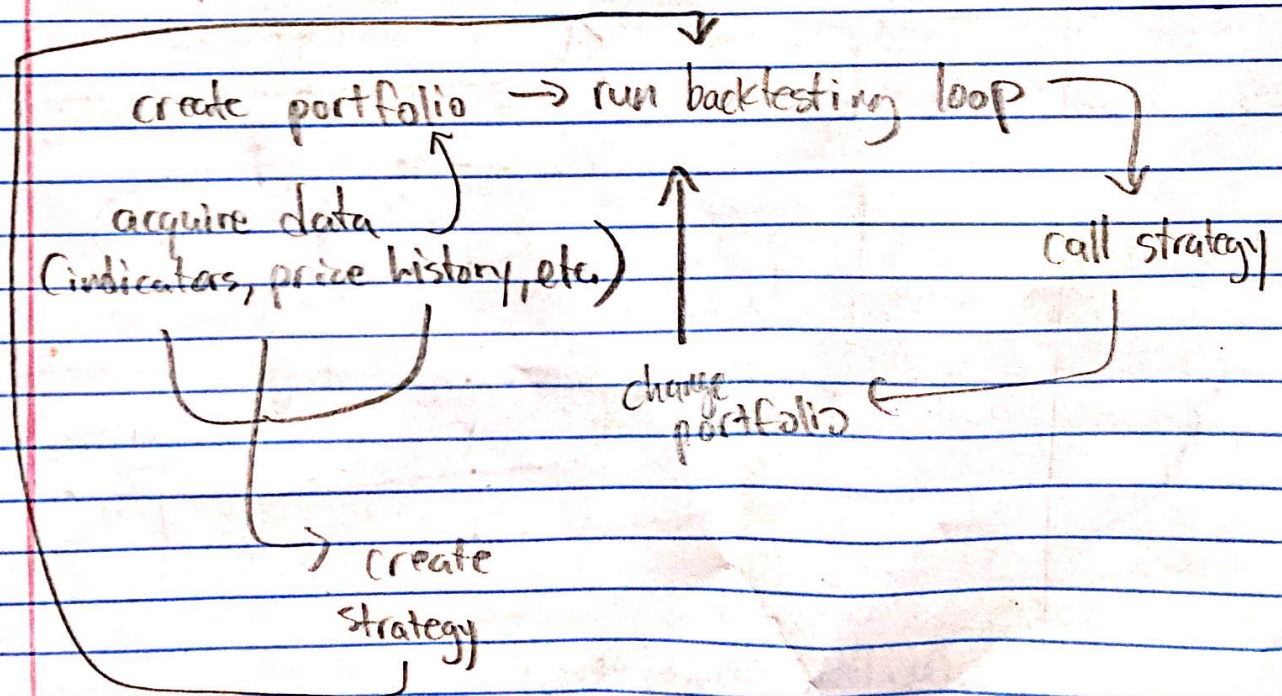 create portfolio → run backtesting loop
acquire data
(indicators, price history, etc.)
call strategy
change
portfolio
create
strategy